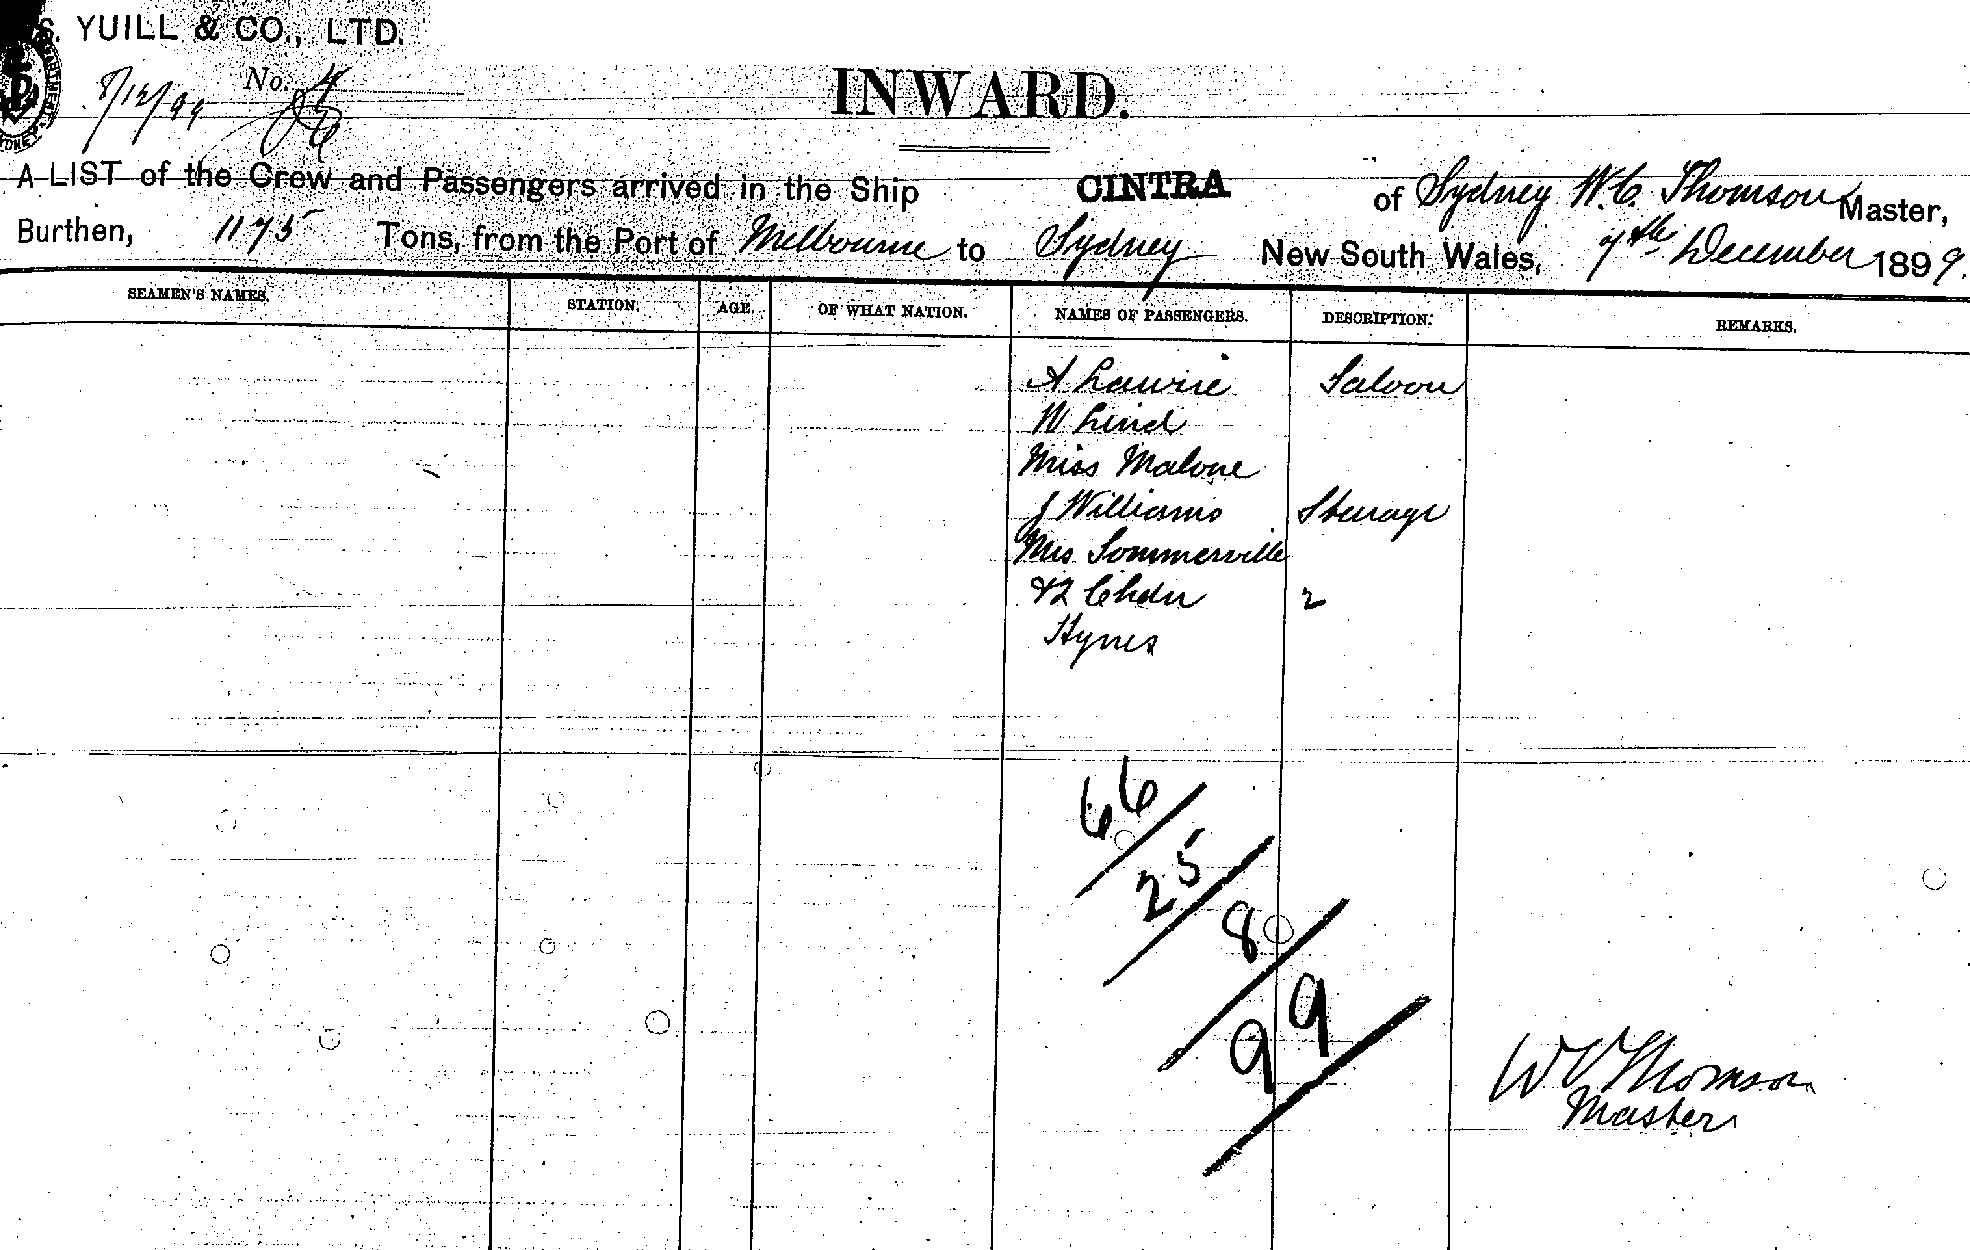 S. YUILL & CO., LTD.
8/12/99 No.
INWARD.
A LIST of the Crew and Passengers arrived in the Ship CINTRA of Sydney W.C. Thomson Master,
Burthen, 1175 Tons, from the Port of Melbourne to Sydney New South Wales, 7th December 1899.
SEAMEN'S NAMES. STATION. AGE. OF WHAT NATION. NAMES OF PASSENGERS. DESCRIPTION. REMARKS.
A Laurie Saloon
W Lind
Miss Malone
J Williams Steerage
Mrs Sommerville
&2 Chdn 2
Hynes
66
25
8
99
WC Thomson
Master